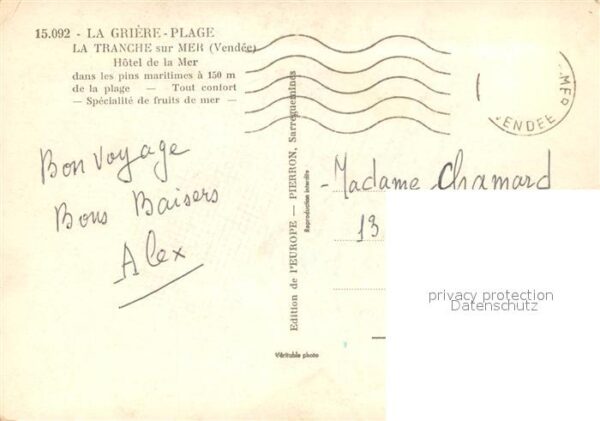 15.092 - LA GRIÈRE-PLAGE
LA TRANCHE sur MER (Vendée)
Hôtel de la Mer
dans les pins maritimes à 150 m
de la plage — Tout confort
— Spécialité de fruits de mer —
Bon voyage
Bons Baisers
Alex
Edition de l'EUROPE — PIERRON, Sarreguemines
Reproduction interdite
Véritable photo
MER
VENDEE
Madame Chamard
13
privacy protection
Datenschutz